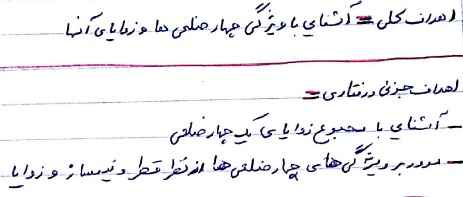 اهداف کلی = آشنایی با ویژگی چهار ضلعی ها و زوایای آنها
اهداف جزئی و رفتاری =
- آشنایی با مجموع زوایای یک چهار ضلعی
- مرور بر ویژگی های چهار ضلعی ها از نظر قطر و نیمساز و زوایا